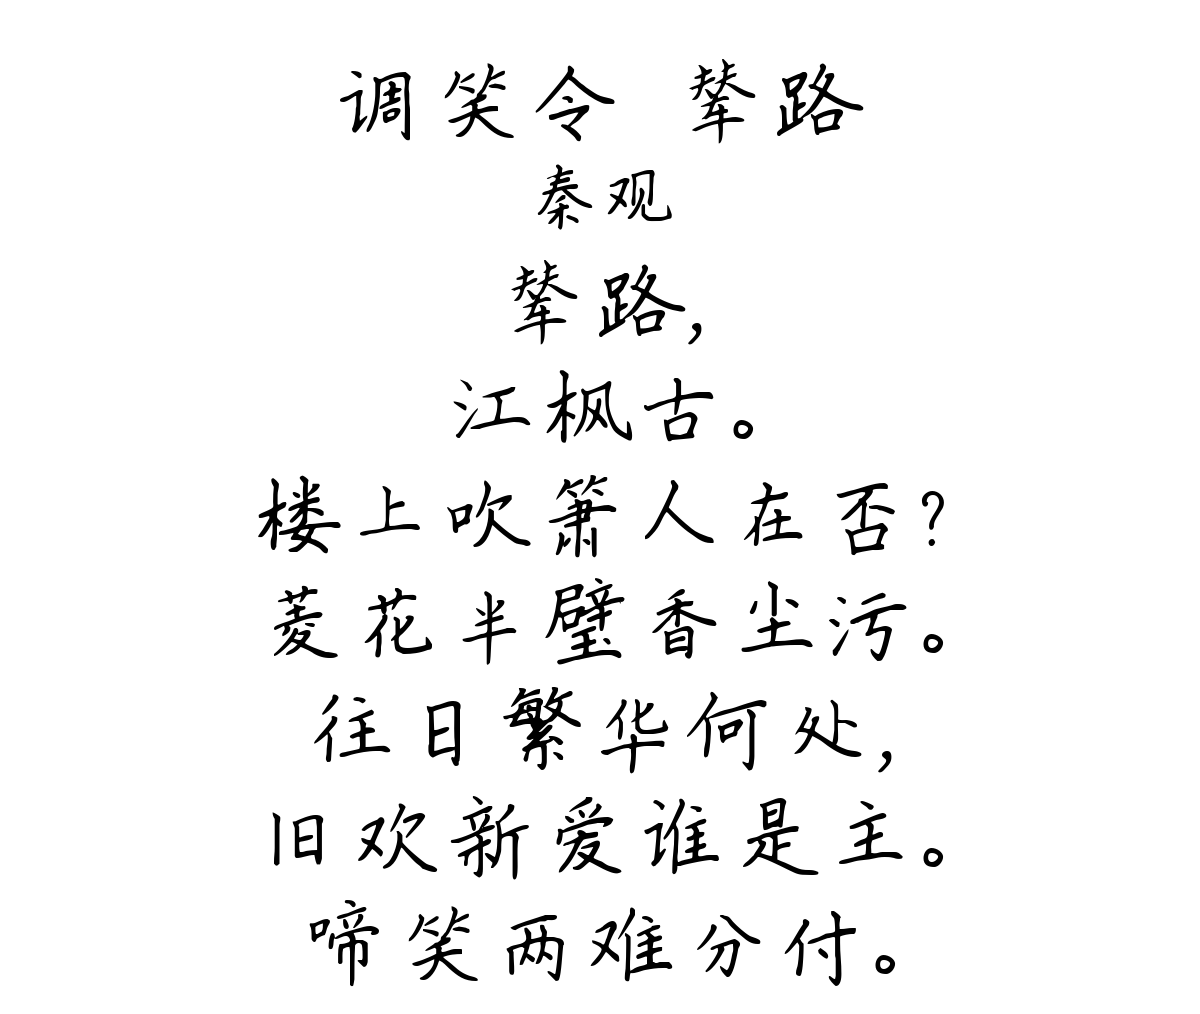 调笑令 辇路
秦观
辇路,
江枫古。
楼上吹箫人在否?
菱花半璧香尘污。
往日繁华何处,
旧欢新爱谁是主。
啼笑两难分付。